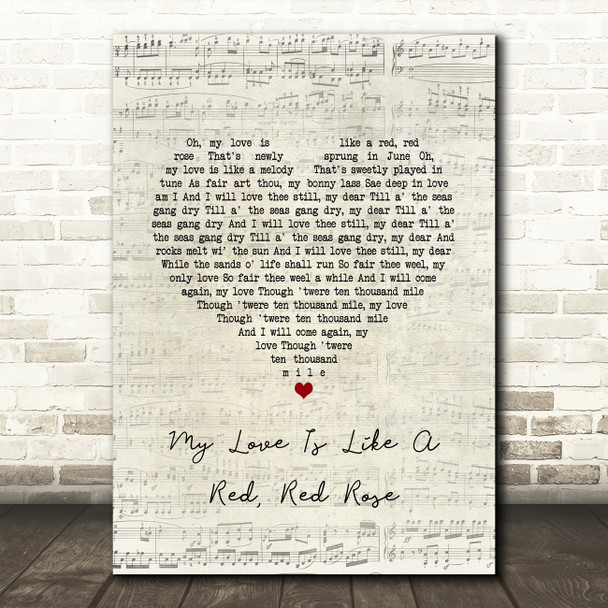 Oh, my love is like a red, red
rose That's newly sprung in June Oh,
my love is like a melody That's sweetly played in
tune As fair art thou, my bonny lass Sae deep in love
am I And I will love thee still, my dear Till a' the seas
gang dry Till a' the seas gang dry, my dear Till a' the
seas gang dry And I will love thee still, my dear Till a'
the seas gang dry Till a' the seas gang dry, my dear And
rocks melt wi' the sun And I will love thee still, my dear
While the sands o' life shall run So fair thee weel, my
only love So fair thee weel a while And I will come
again, my love Though 'twere ten thousand mile
Though 'twere ten thousand mile, my love
Though 'twere ten thousand mile
And I will come again, my
love Though 'twere
ten thousand
mile
My Love Is Like A
Red, Red Rose